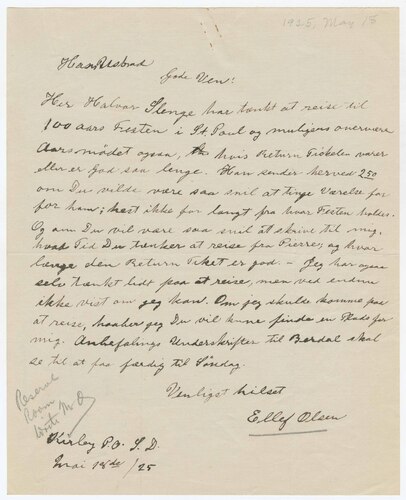 1925, May 18
Hans Ustrud
Gode Ven:
Her Halvor Stenge har tænkt at reise til
100 aars Festen i St. Paul og muligens overvære
Aarsmødet ogsaa, hvis Return Ticketen varer
eller er God saa længe. Han sender herved 2.50
om Du vilde være saa snil at tinge Værelse for
for ham; helst ikke for langt fra hvor Festen holdes.
Og om Du vil være saa snil at skrive til mig,
hvad Tid Du tænker at reise fra Pierre, og hvor
længe den Return Ticket er god — Jeg har ogsaa
selv tænkt lidt paa at reise, men ved endnu
ikke vist om jeg kan. Om jeg skulde komme paa
at reise, haaber jeg Du vil kune finde en Plads for
mig. Anbefalings Underskrifter til Berdal skal
se til at faa færdig til Søndag.
Venligst hilset
Ellef Olsen
Reserve
Room
Wrote M.O
Kirley P.O. S.D.
Mai 18de/25